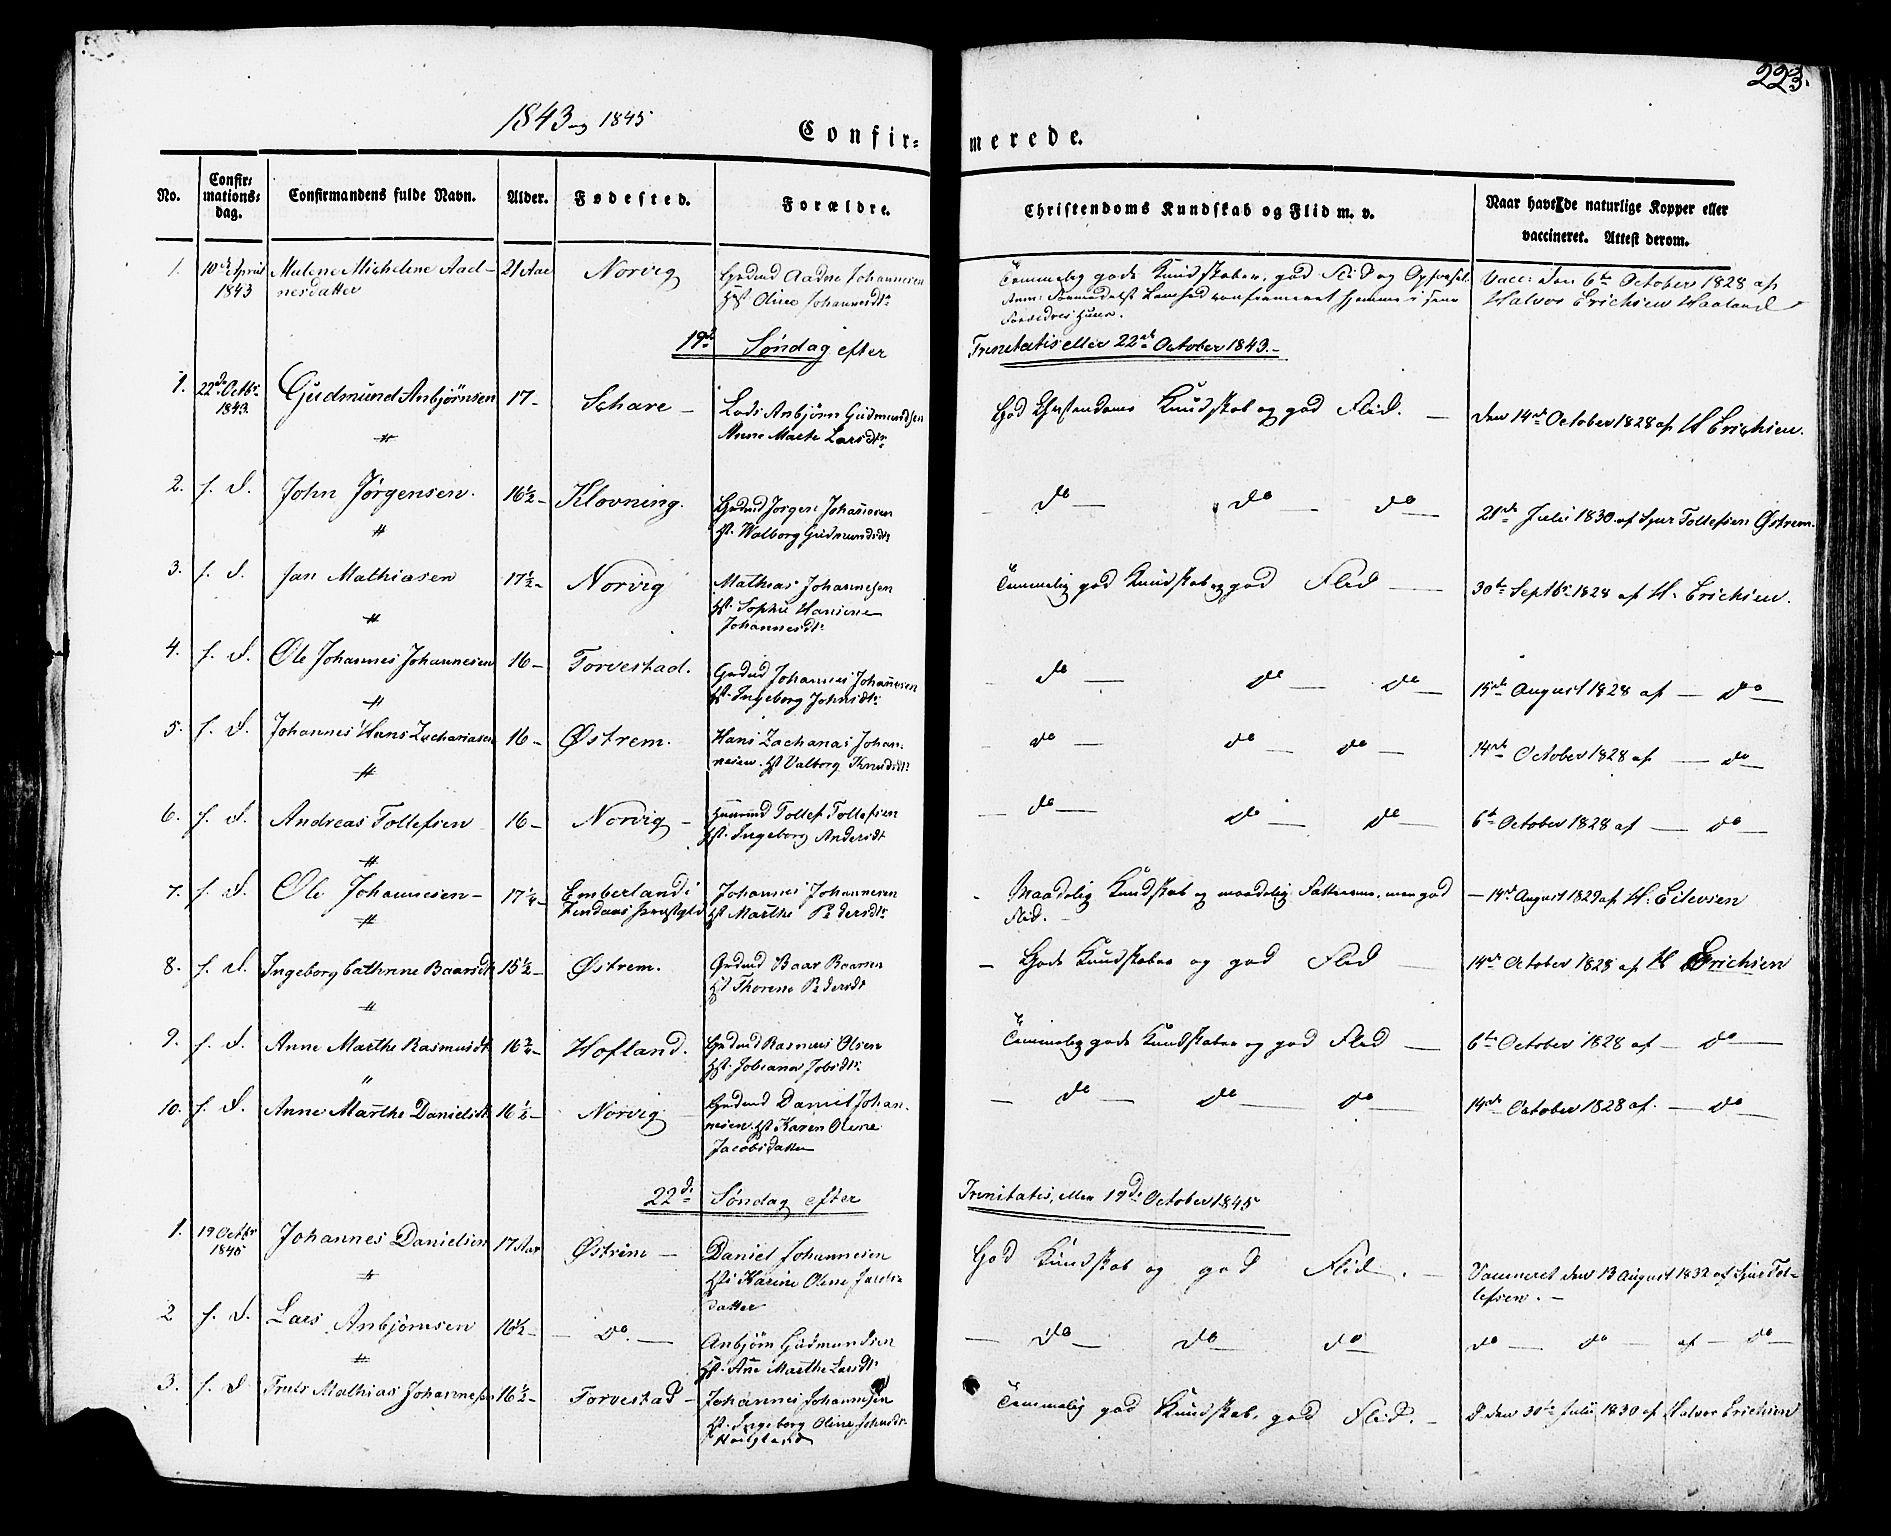 223.
1843 og 1845
Confir- merede.
No. Confir-mations-dag. Confirmandens fulde Navn. Alder. Fødested. Forældre. Christendoms Kundskab og Flid m. v. Naar havte de naturlige Kopper eller vaccineret. Attest derom.
1. 10de April 1843 Malene Michelene Aad-nesdatter 21 Aar Norvig Aadne Johannesen Hst Oline Johannesdtr Temmelig gode Kundskaber, god Flid og Opførsel. Vacc: den 6te October 1828 af Halvor Erichsen Haaland
Anm: Formedelst confirmeret hjemme i sine Forældres Huus.
19de Søndag efter Trinitatis eller 22de October 1843.
1. 22de Octbr 1843. Gudmund Anbjørnsen 17 - Schare - Lods Anbjørn Gudmundsen Anne Marte Larsdtr God Christendoms Kundskab og god Flid. - den 14de October 1828 af H Erichsen.
2. f. d. John Jørgensen. 16 1/2 - Klovning. Jørgen Johannesen Hst. Walborg Gudmundsdtr do - do - do - 21de Julii 1830 af Sjur Tollefsen Østrem.
3. f. d. Jan Mathiasen 17 1/2 - Norvig Mathias Johannesen Hst. Sophie Hansine Johannesdtr Temmelig god Kundskab og god Flid - 30te Septbr 1828 af H. Erichsen.
4. f. d. Ole Johannes Johannesen 16 - Torvestad. Johannes Johannesen Hst. Ingeborg Johnsdtr do - do - do - 15de August 1828 af - do -
5. f. d. Johannes Hans Zachariasen 16 - Østrem. Hans Zacharias Johan-nesen. Hst Valborg Knudsdtr - do - do - do - 14de October 1828 af - do -
6. f. d. Andreas Tollefsen 16 - Norvig - Tollef Tollefsen Hst. Ingeborg Andersdt - do - do - do - 6te October 1828 af - do -
7. f. d. Ole Johannesen - 17 1/4 - Emberland i Lindaas Præstgld Johannes Johannesen Hst Marthe Pedersdtr - Maadelig Kundskab og maadelig Fatteevne, men god Flid. - - 14de August 1829 af H. Eilevsen
8. f. d. Ingeborg Cathrine Baarsdtr 15 1/2 - Østrem. Baar Baarsen Hst Thorine Pedersdt - Gode Kundskaber og god Flid - 14de October 1828 af H Erichsen
9. f. d. Anne Marthe Rasmusdt 16 3/4 - Hofland. Rasmus Olsen Hst. Jobiana Jobsdtr Temmelig gode Kundskaber og god Flid - 6te October 1828 af - do -
10. f. d. Anne Marthe Danielsdt 16 1/2 - Norvig Daniel Johan-nesen. Hst Karen Oline Jacobsdatter - do - do - do - 14de October 1828 af. - do -
22de Søndag efter Trinitatis, eller 19de October 1845
1. 19 Octbr 1845 Johannes Danielsen 17 Aar Østrem - Daniel Johannesen Hst: Karine Olene Jacobs datter God Kundskab og god Flid. - Vaccineret den 13 August 1832 af Sjur Tol-lefsen. -
2 f. d. Lars Anbjørnsen 16 1/2 - - do. - Anbjørn Gudmundsen Hst. Ane Marthe Larsdtr - do - do - do - do - do - af - do -
3. f. d Truls Mathias Johannesen 16 1/2 - Torvestad - Johannes Johannesen Hst. Ingeborg Oline Johnsdtr Temmelig god Kundskab, god Flid. - den 30te Julii 1830 af Halvor Erichsen